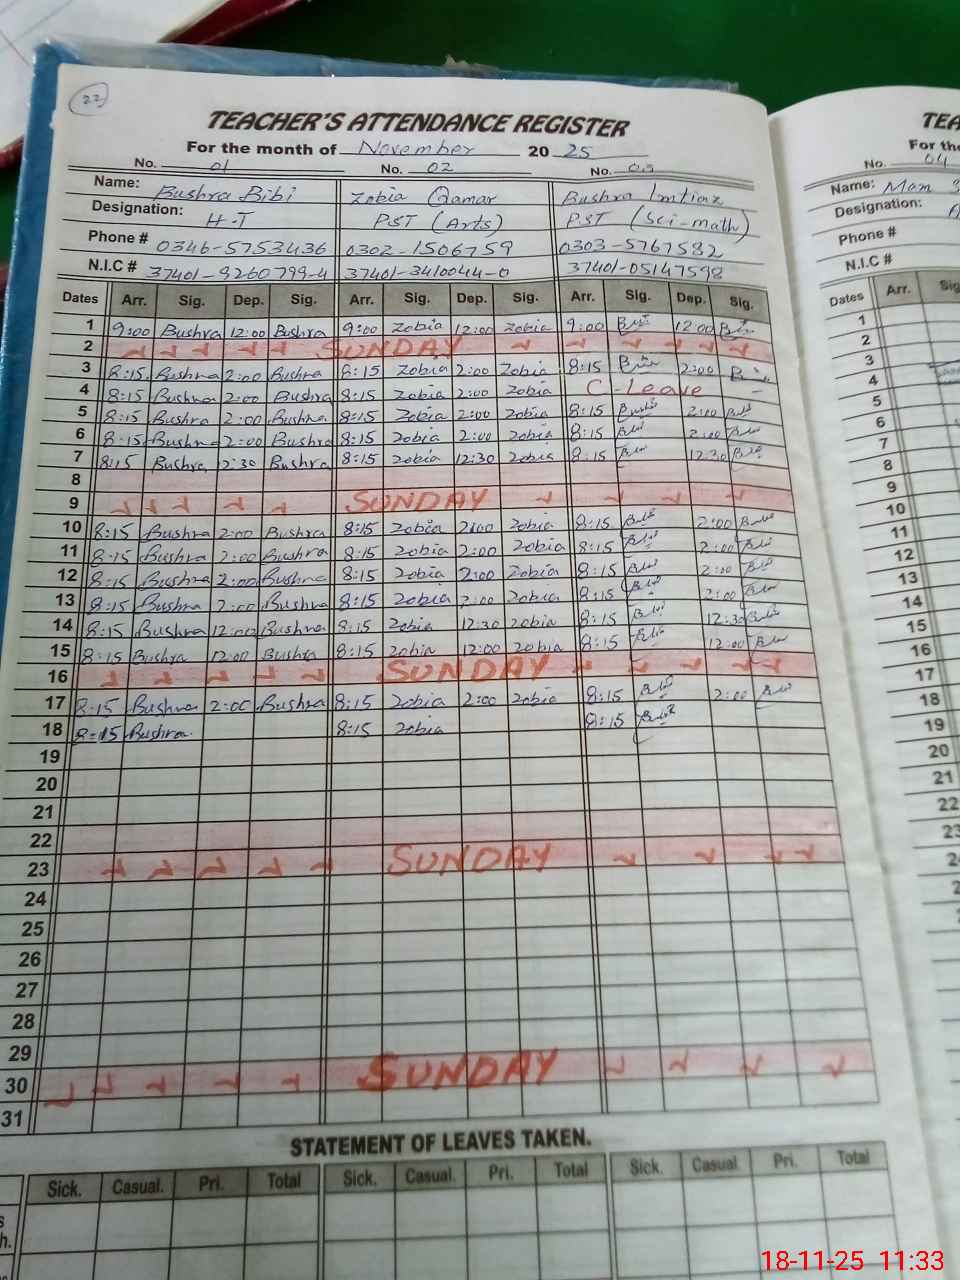 22
TEACHER'S ATTENDANCE REGISTER
For the month of November 20 25
No. 01 No. 02 No. 03
Name: Bushra Bibi Zobia Qamar Bushra Imtiaz
Designation: H.T PST (Arts) PST (Sci-math)
Phone # 0346-5753436 0302-1506759 0303-5767582
N.I.C # 37401-8260799-4 37401-3410044-0 37401-05147598
Dates Arr. Sig. Dep. Sig. Arr. Sig. Dep. Sig. Arr. Sig. Dep. Sig.
1 9:00 Bushra 12:00 Bushra 9:00 Zobia 12:00 Zobia 9:00 12:00
2 SUNDAY
3 8:15 Bushra 2:00 Bushra 8:15 Zobia 2:00 Zobia 8:15 2:00
4 8:15 Bushra 2:00 Bushra 8:15 Zobia 2:00 Zobia C-Leave
5 8:15 Bushra 2:00 Bushra 8:15 Zobia 2:00 Zobia 8:15 2:00
6 8:15 Bushra 2:00 Bushra 8:15 Zobia 2:00 Zobia 8:15 2:00
7 8:15 Bushra 12:30 Bushra 8:15 Zobia 12:30 Zobia 8:15 12:30
8
9 SUNDAY
10 8:15 Bushra 2:00 Bushra 8:15 Zobia 2:00 Zobia 8:15 2:00
11 8:15 Bushra 2:00 Bushra 8:15 Zobia 2:00 Zobia 8:15 2:00
12 8:15 Bushra 2:00 Bushra 8:15 Zobia 2:00 Zobia 8:15 2:00
13 8:15 Bushra 2:00 Bushra 8:15 Zobia 2:00 Zobia 8:15 2:00
14 8:15 Bushra Bushra 8:15 Zobia 12:30 Zobia 8:15 12:30
15 8:15 Bushra 12:00 Bushra 8:15 Zobia 12:00 Zobia 8:15 12:00
16 SUNDAY
17 8:15 Bushra 2:00 Bushra 8:15 Zobia 2:00 Zobia 8:15 2:00
18 8:15 Bushra 8:15 Zobia 8:15
19
20
21
22
23 SUNDAY
24
25
26
27
28
29
30 SUNDAY
31
STATEMENT OF LEAVES TAKEN.
Sick. Casual. Pri. Total Sick. Casual. Pri. Total Sick. Casual. Pri. Total
h.
TEA
For the
No. 04
Name: Mam
Designation:
Phone #
N.I.C #
Dates Arr. Sig
1
2
3
4
5
6
7
8
9
10
11
12
13
14
15
16
17
18
19
20
21
22
23
18-11-25 11:33